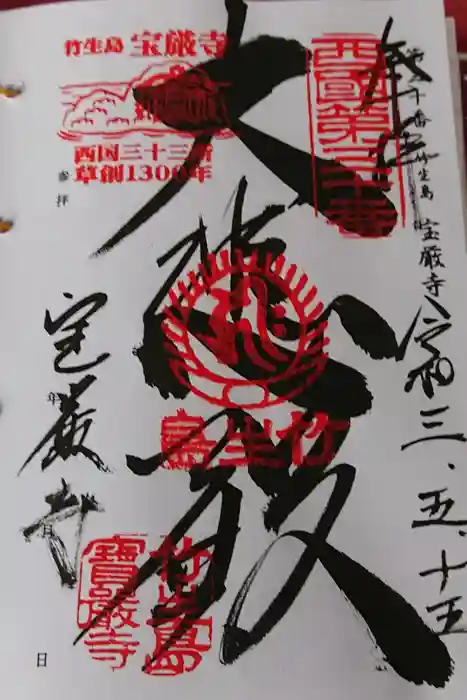 奉拝
第三十番 竹生島 宝厳寺
令和三.五.十五
西國第三十番
大悲殿
竹生島
竹生島 宝厳寺
西国三十三所
草創1300年
参拝
宝厳寺
年
月
日
竹生島
寶嚴寺